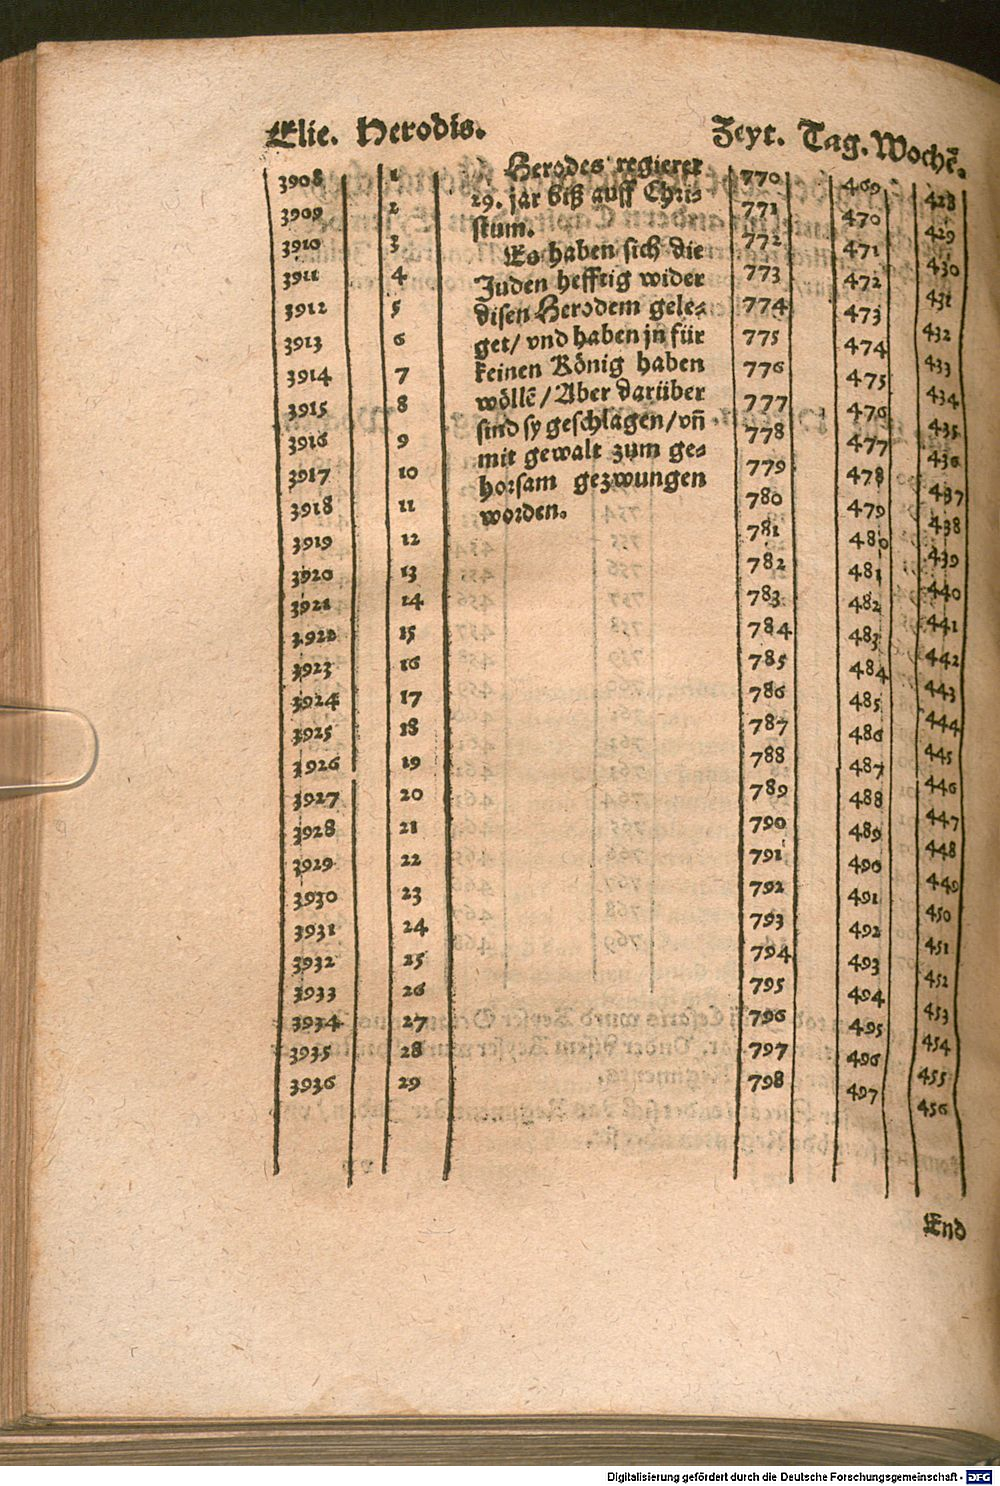 Elie. Herodis. Zeyt. Tag. Wochē.
3908 1 Herodes regieret 770 469 428
3909 2 29. jar biß auff Chri- 771 470 429
3910 3 stum. 772 471 430
3911 4 Es haben sich die 773 472 431
3912 5 Juden hefftig wider 774 473 432
3913 6 disen Herodem gele- 775 474 433
3914 7 get/ vnd haben jn für 776 475 434
3915 8 keinen König haben 777 476 435
3916 9 wöllē/ Aber darüber 778 477 436
3917 10 sind sy geschlagen/ vñ 779 478 437
3918 11 mit gewalt zum ge- 780 479 438
3919 12 horsam gezwungen 781 480 439
3920 13 worden. 782 481 440
3921 14 783 482 441
3922 15 784 483 442
3923 16 785 484 443
3924 17 786 485 444
3925 18 787 486 445
3926 19 788 487 446
3927 20 789 488 447
3928 21 790 489 448
3929 22 791 490 449
3930 23 792 491 450
3931 24 793 492 451
3932 25 794 493 452
3933 26 795 494 453
3934 27 796 495 454
3935 28 797 496 455
3936 29 798 497 456
End
Digitalisierung gefördert durch die Deutsche Forschungsgemeinschaft - DFG